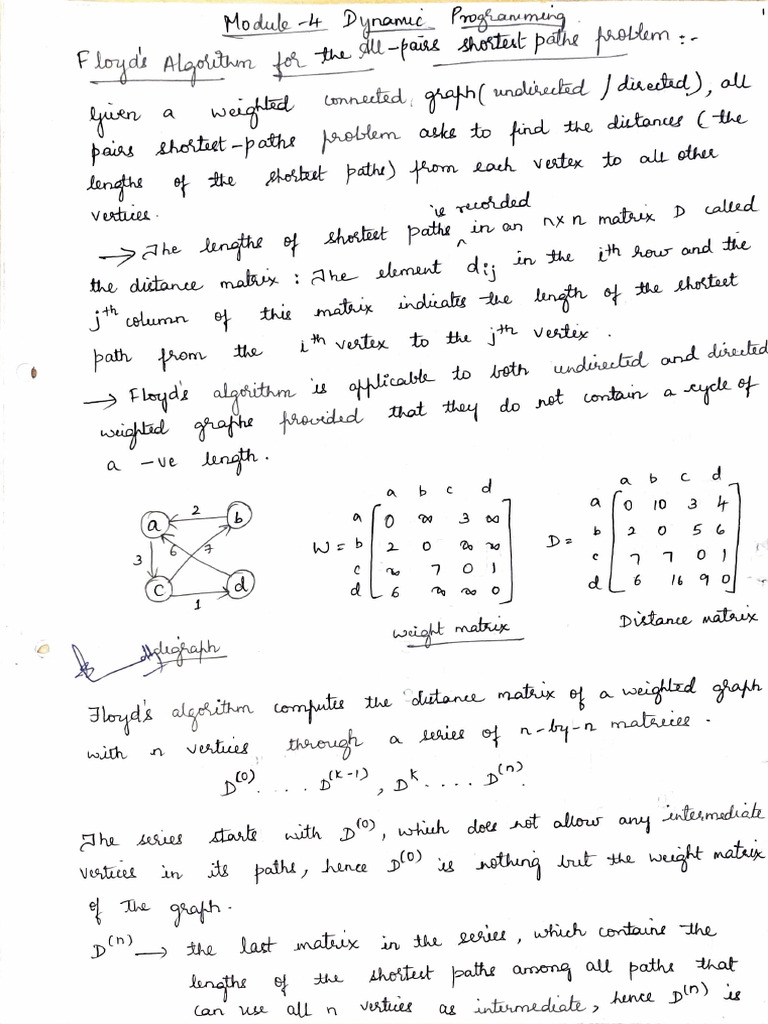 1
Module-4 Dynamic Programming
Floyd's Algorithm for the All-pairs shortest paths problem:-
Given a weighted connected graph (undirected / directed), all
pairs shortest-paths problem asks to find the distances (the
lengths of the shortest paths) from each vertex to all other
vertices.
is recorded
→ The lengths of shortest paths ^ in an n×n matrix D called
the distance matrix : The element dij in the ith row and the
jth column of this matrix indicates the length of the shortest
path from the ith vertex to the jth vertex.
→ Floyd's algorithm is applicable to both undirected and directed
weighted graphs provided that they do not contain a cycle of
a -ve length.
a 2 b
3 6 7
c 1 d
a b c d
a 0 ∞ 3 ∞
W = b 2 0 ∞ ∞
c ∞ 7 0 1
d 6 ∞ ∞ 0
weight matrix
a b c d
a 0 10 3 4
D = b 2 0 5 6
c 7 7 0 1
d 6 16 9 0
Distance matrix
digraph
Floyd's algorithm computes the distance matrix of a weighted graph
with n vertices through a series of n-by-n matrices.
D(0) .... D(k-1), Dk .... D(n).
The series starts with D(0), which does not allow any intermediate
vertices in its paths, hence D(0) is nothing but the weight matrix
of the graph.
D(n) → the last matrix in the series, which contains the
lengths of the shortest paths among all paths that
can use all n vertices as intermediate, hence D(n) is